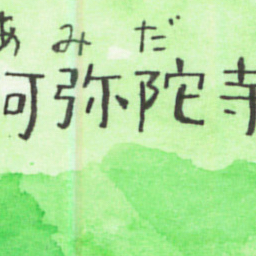 あみだ
阿弥陀寺